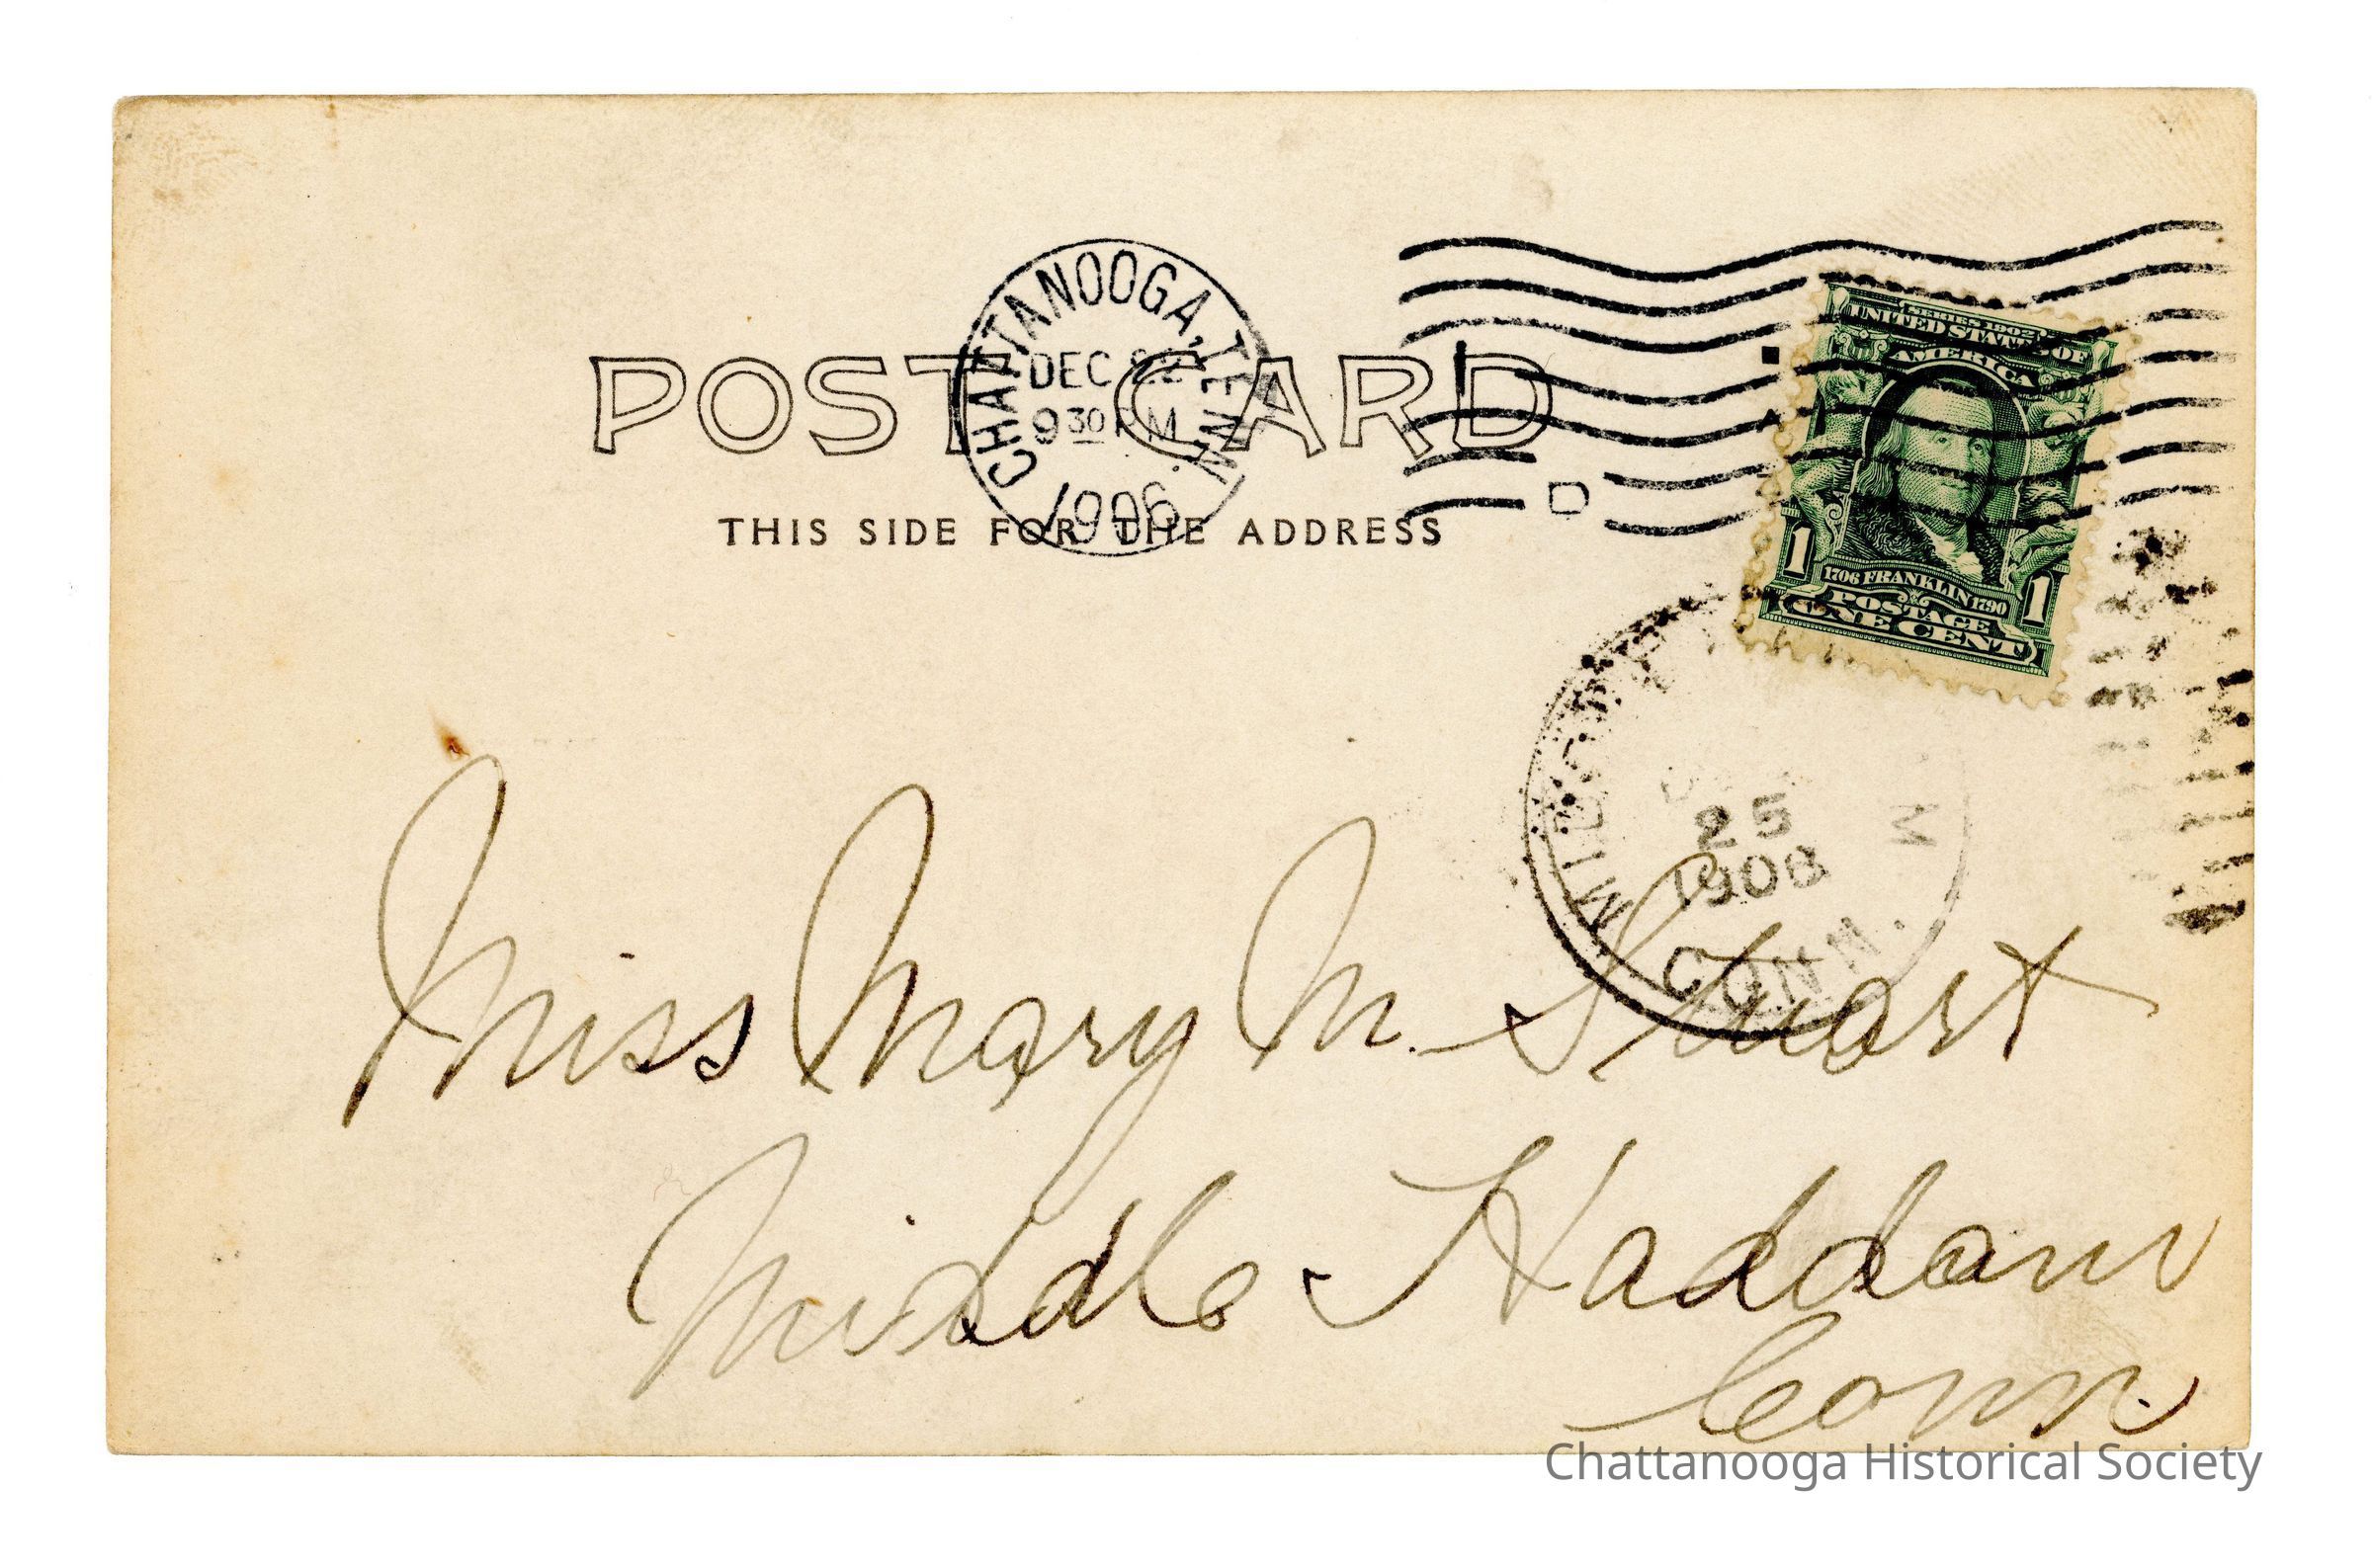 CHATTANOOGA, TENN.
DEC 22
9 30 PM
1906
POST CARD
THIS SIDE FOR THE ADDRESS
SERIES 1902
UNITED STATES OF
AMERICA
1 1706 FRANKLIN 1790 1
POSTAGE
ONE CENT
25
1906
M
CONN.
Miss Mary M. Stuart
Middle Haddam
Conn.
Chattanooga Historical Society